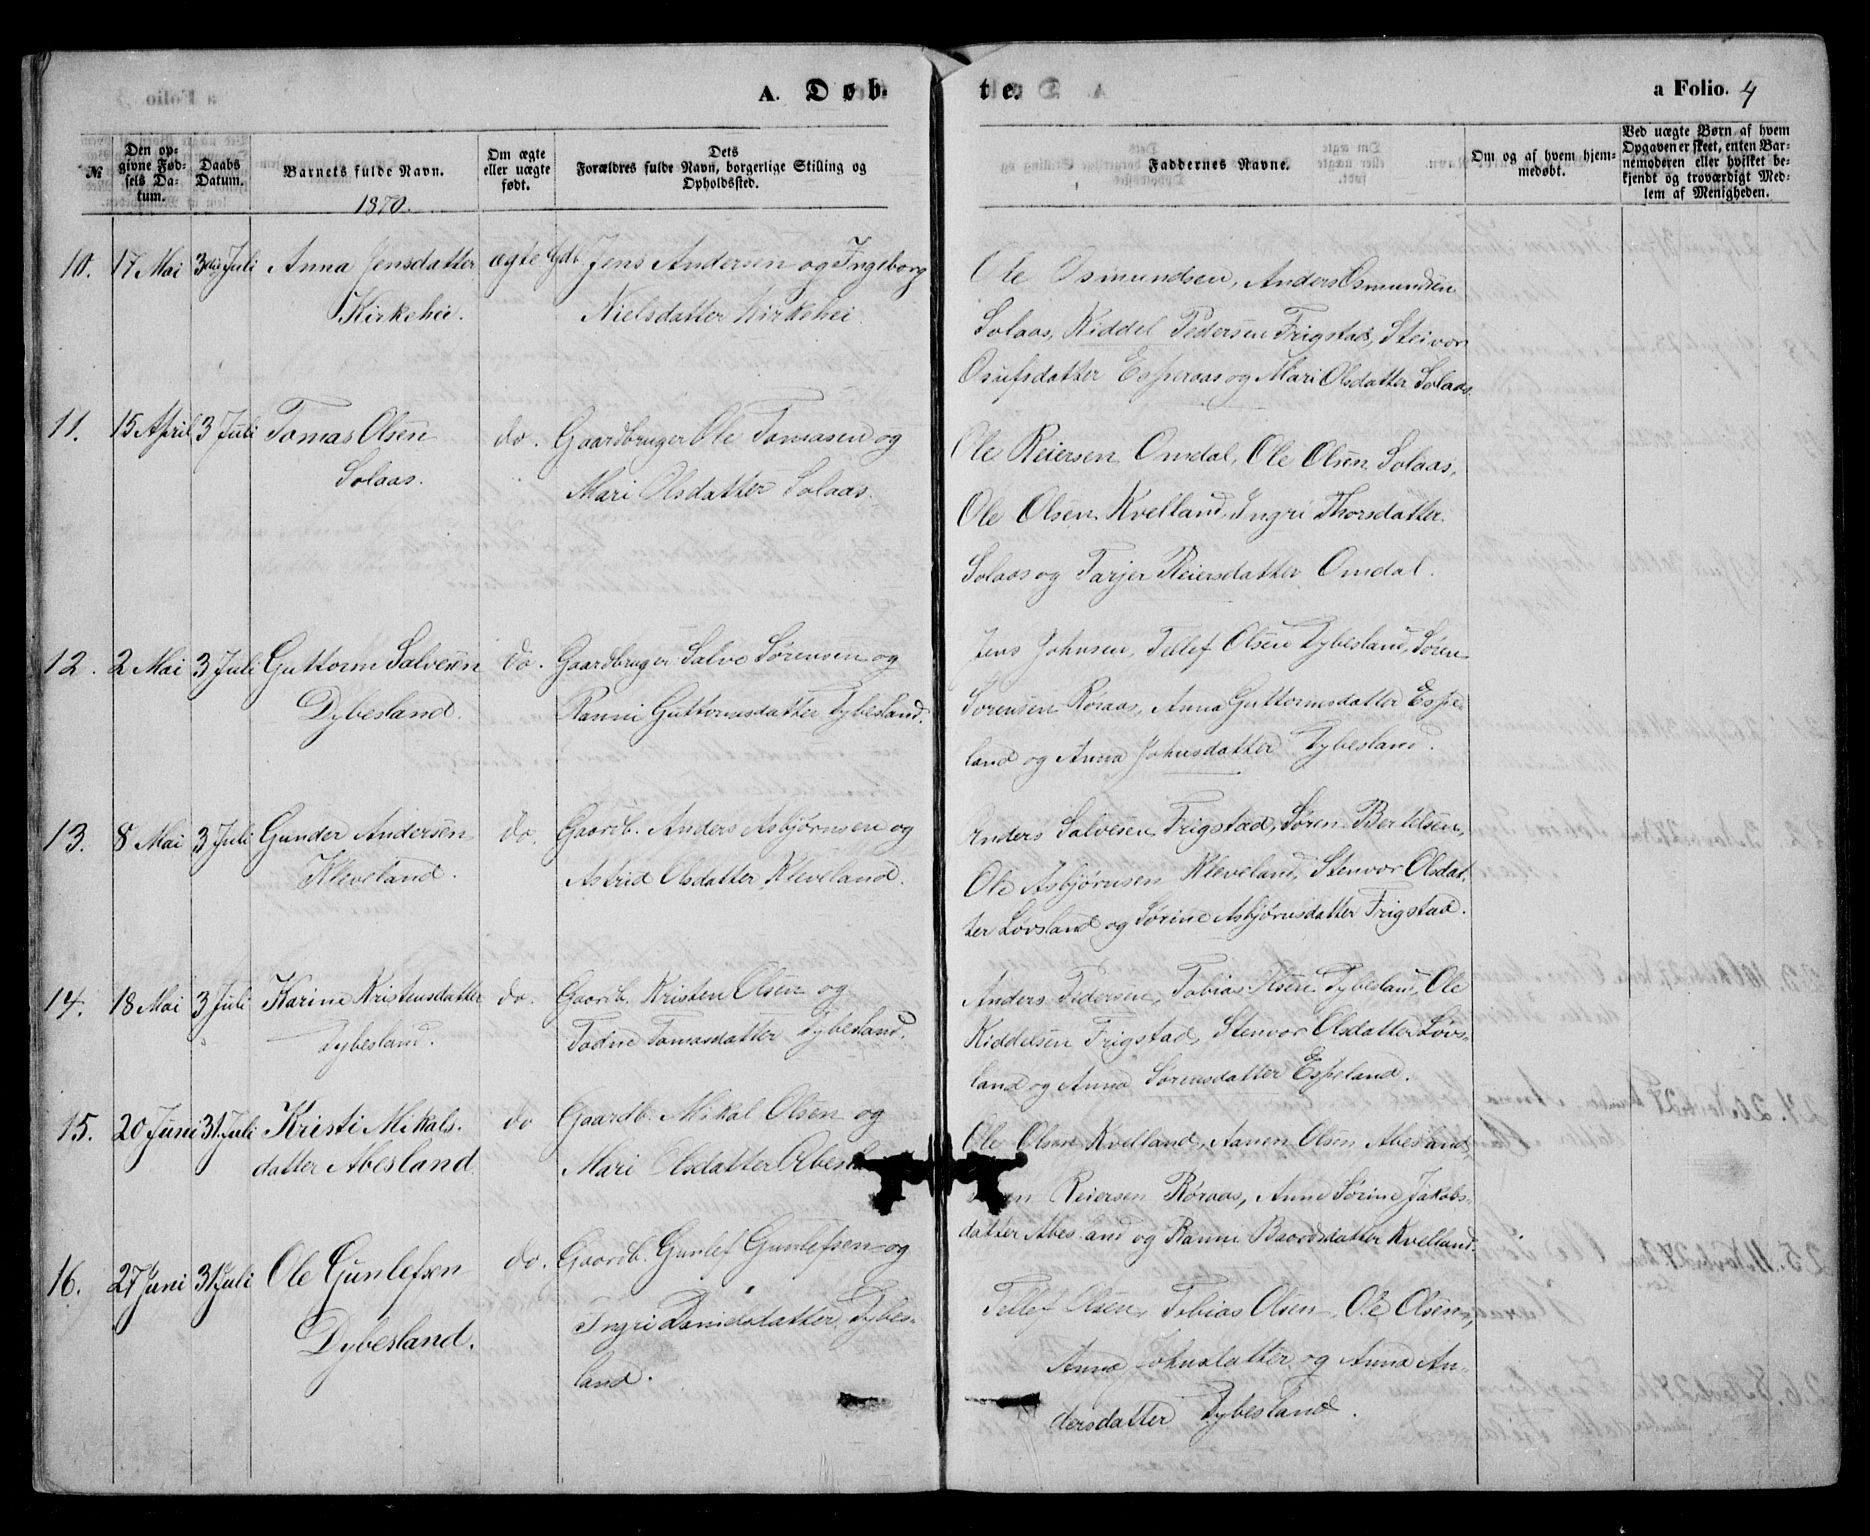 A. Døbte. a Folio. 4
№
Den opgivne Fødsels Datum.
Daabs Datum.
Barnets fulde Navn.
Om ægte eller uægte født.
Dets Forældres fulde Navn, borgerlige Stilling og Opholdssted.
Faddernes Navne.
Om og af hvem hjemmedøbt.
Ved uægte Børn af hvem Opgaven er skeet, enten Barnemoderen eller hvilket bekjendt og troværdigt Medlem af Menigheden.
1870.
10. 17 Mai 3die Juli Anna Jensdatter ægte Gdb. Jens Andersen og Ingeborg
Kirkehei. Nielsdatter Kirkehei.
Ole Osmundsen, Anders Osmundsen
Solaas, Kiddel Pedersen Frigstad, Steivor
Osufsdatter Esperaas og Mari Olsdatter Solaas.
11. 15 April 3 Juli Tomas Olsen do. Gaardbruger Ole Tomasen og
Solaas. Mari Olsdatter Solaas.
Ole Reiersen Omdal, Ole Olsen Solaas,
Ole Olsen Kvelland, Ingri Thorsdatter
Solaas og Tarjer Reiersdatter Omdal.
12. 2 Mai 3 Juli Guttorm Salvesen do. Gaardbruger Salve Sørensen og
Dybesland. Ranni Guttormsdatter Dybesland.
Jens Johnsen, Tellef Olsen Dybesland, Søren
Sørensen Røraas, Anna Guttormsdatter Espe-
land og Anna Johnsdatter Dybesland.
13. 8 Mai 3 Juli Gunder Andersen do. Gaardb. Anders Asbjørnsen og
Kleveland. Astrid Olsdatter Kleveland.
Anders Salvesen Frigstad, Søren Bertelsen,
Ole Asbjørnsen Kleveland, Stenvor Olsdat-
ter Løvsland og Sørine Asbjørnsdatter Frigstad.
14. 18 Mai 3 Juli Karine Kristensdatter do. Gaardb. Kristen Olsen og
Dybesland. Todne Tomasdatter Dybesland.
Anders Pedersen, Tobias Olsen Dybesland, Ole
Kiddelsen Frigstad, Stenvor Olsdatter Løvs-
land og Anna Sørensdatter Espeland.
15. 20 Juni 31 Juli Kristi Mikals- do Gaardb. Mikal Olsen og
datter Abesland Mari Olsdatter
Ole Olsen Kvelland, Aanen Olsen Abesland,
Reiersen Røraas, Anne Sørine Jakobs-
datter Abesland og Ranni Baardsdatter Kvelland.
16. 27 Juni 31 Juli Ole Gunlefsen do. Gaardb. Gunlef Gunlefsen og
Dybesland. Ingri Danielsdatter, Dybes-
land.
Tellef Olsen, Tobias Olsen, Ole Olsen,
Anna Johnsdatter og Anna An-
dersdatter Dybesland.